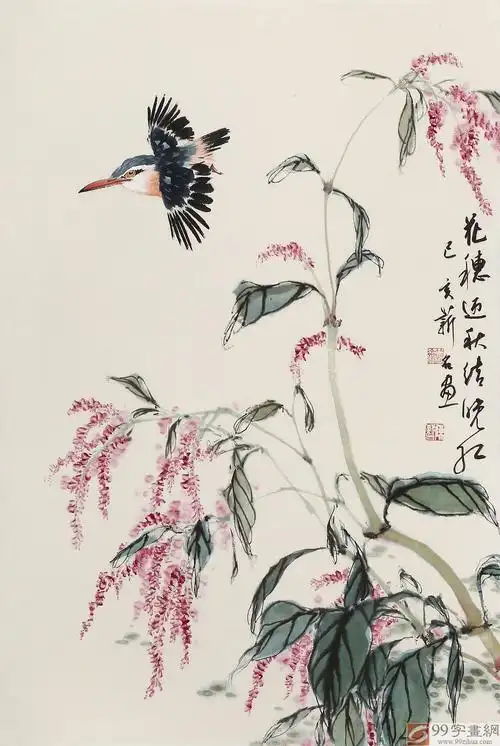 花穗迎秋结晚红
己亥薪石画
99字畫網
www.99zihua.com